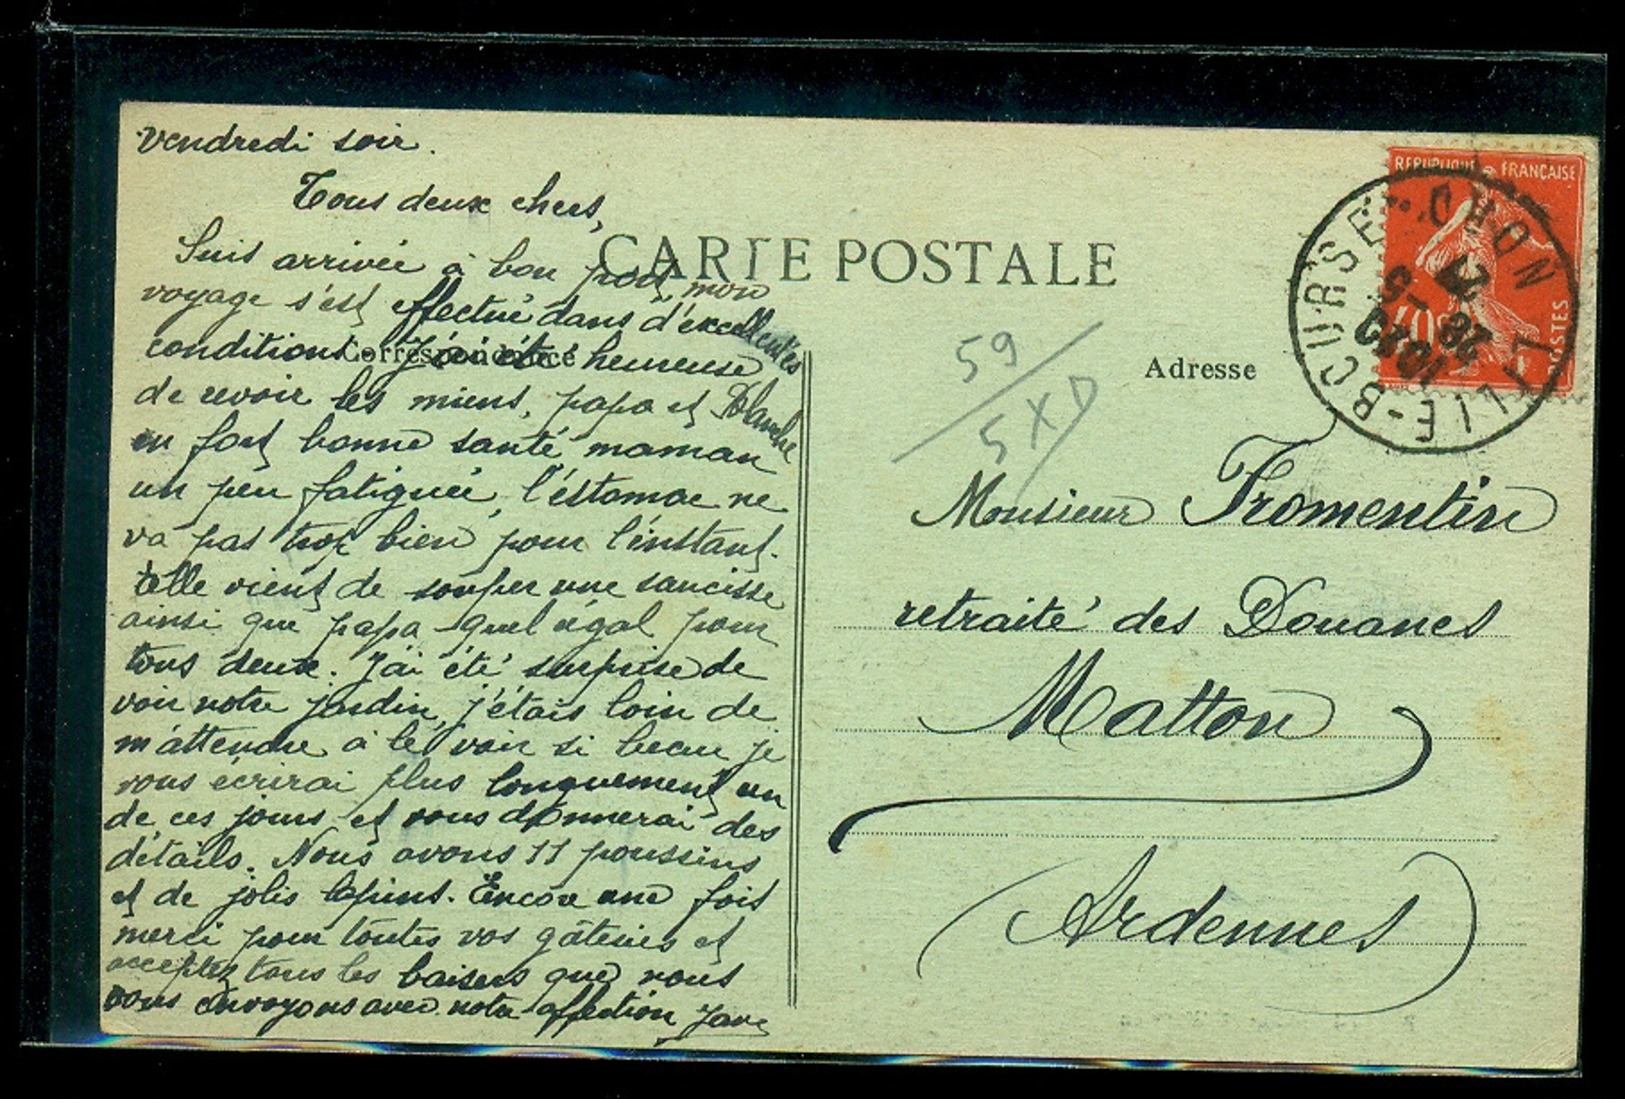 vendredi soir.
Tous deux chers,
Suis arrivée à bon port, mon
voyage s'est effectué dans d'excellentes
conditions. J'ai été heureuse
de revoir les miens, papa et Blanche
en fort bonne santé maman
un peu fatiguée, l'estomac ne
va pas trop bien pour l'instant.
Elle vient de souper une saucisse
ainsi que papa quel régal pour
tous deux. J'ai été surprise de
voir notre jardin, j'étais loin de
m'attendre à le voir si beau je
vous écrirai plus longuement un
de ces jours et vous donnerai des
détails. Nous avons 11 poussins
et de jolis lapins. Encore une fois
merci pour toutes vos gâteries et
acceptez tous les baisers que nous
vous envoyons avec notre affection
CARTE POSTALE
Correspondance
Adresse
59
5 X D
REPUBLIQUE FRANÇAISE
10c
POSTES
LILLE-BOURSE
NORD
Monsieur Fromentin
retraité des Douanes
Matton
Ardennes